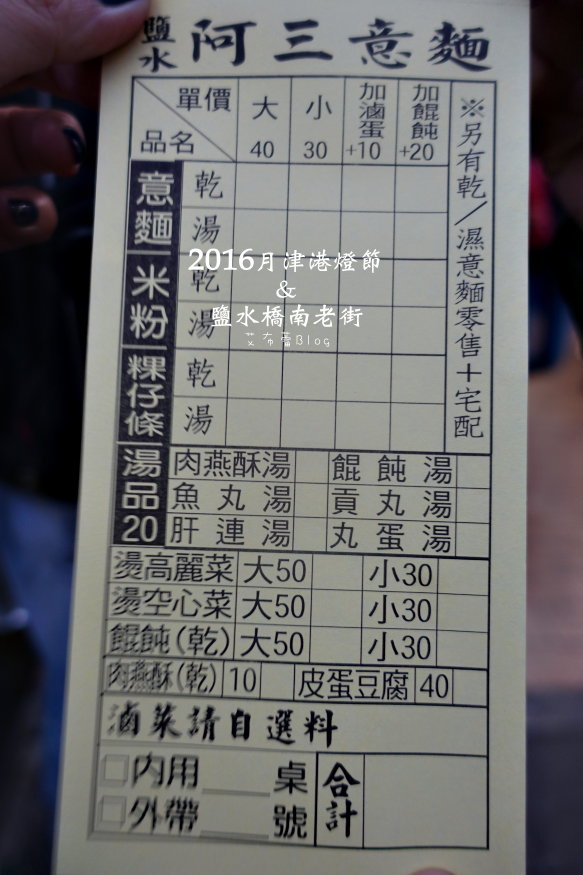 鹽水 阿三意麵
單價 品名 大 40 小 30 加滷蛋 +10 加餛飩 +20
※另有乾/濕意麵零售+宅配
意麵 乾
湯
米粉 乾
湯
粿仔條 乾
湯
2016月津港燈節
&
鹽水橋南老街
艾布蕾Blog
湯品20
肉燕酥湯 餛飩湯
魚丸湯 貢丸湯
肝連湯 丸蛋湯
燙高麗菜 大50 小30
燙空心菜 大50 小30
餛飩(乾) 大50 小30
肉燕酥(乾) 10 皮蛋豆腐 40
滷菜請自選料
□內用____桌 合計
□外帶____號